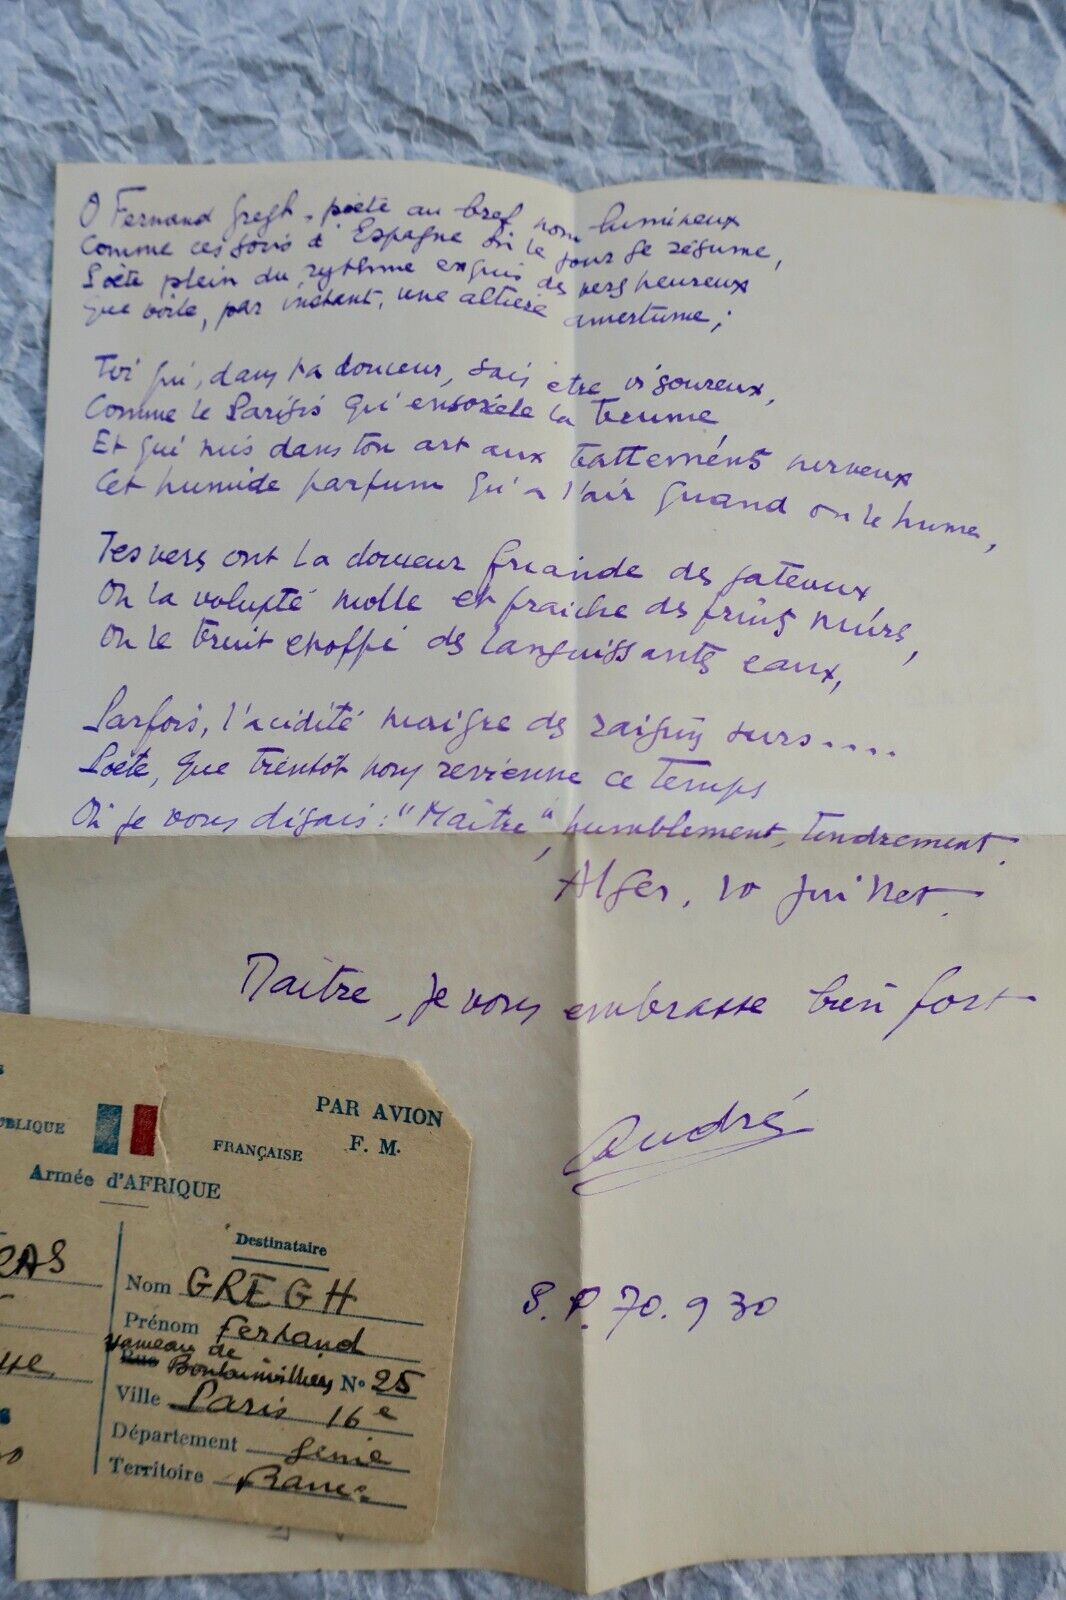 O Fernand Gregh, poète au bref nom lumineux
Comme ces soirs d'Espagne où le jour se résume,
Poète plein du rythme exquis des vers heureux
Que voile, par instant, une altière amertume;
Toi qui, dans ta douceur, sais être vigoureux,
Comme le Parisis qui ensoleile la brume
Et qui mis dans ton art aux battements nerveux
Cet humide parfum qu'a l'air quand on le hume,
Tes vers ont la douceur friande des gateaux,
Ou la volupté molle et fraiche des fruits mûrs,
Ou le bruit étoffé des languissantes eaux,
Parfois, l'acidité maigre des raisins surs....
Poète, que bientôt nous revienne ce temps
Où je vous disais: "Maître", humblement, tendrement.
Alger, 10 juillet.
Maître, je vous embrasse bien fort
André
S.P. 70.930
PUBLIQUE
FRANÇAISE
PAR AVION
F. M.
Armée d'AFRIQUE
Destinataire
Nom GREGH
Prénom Fernand
hameau de
Rue Boulainvilliers N° 25
Ville Paris 16e
Département Seine
Territoire France